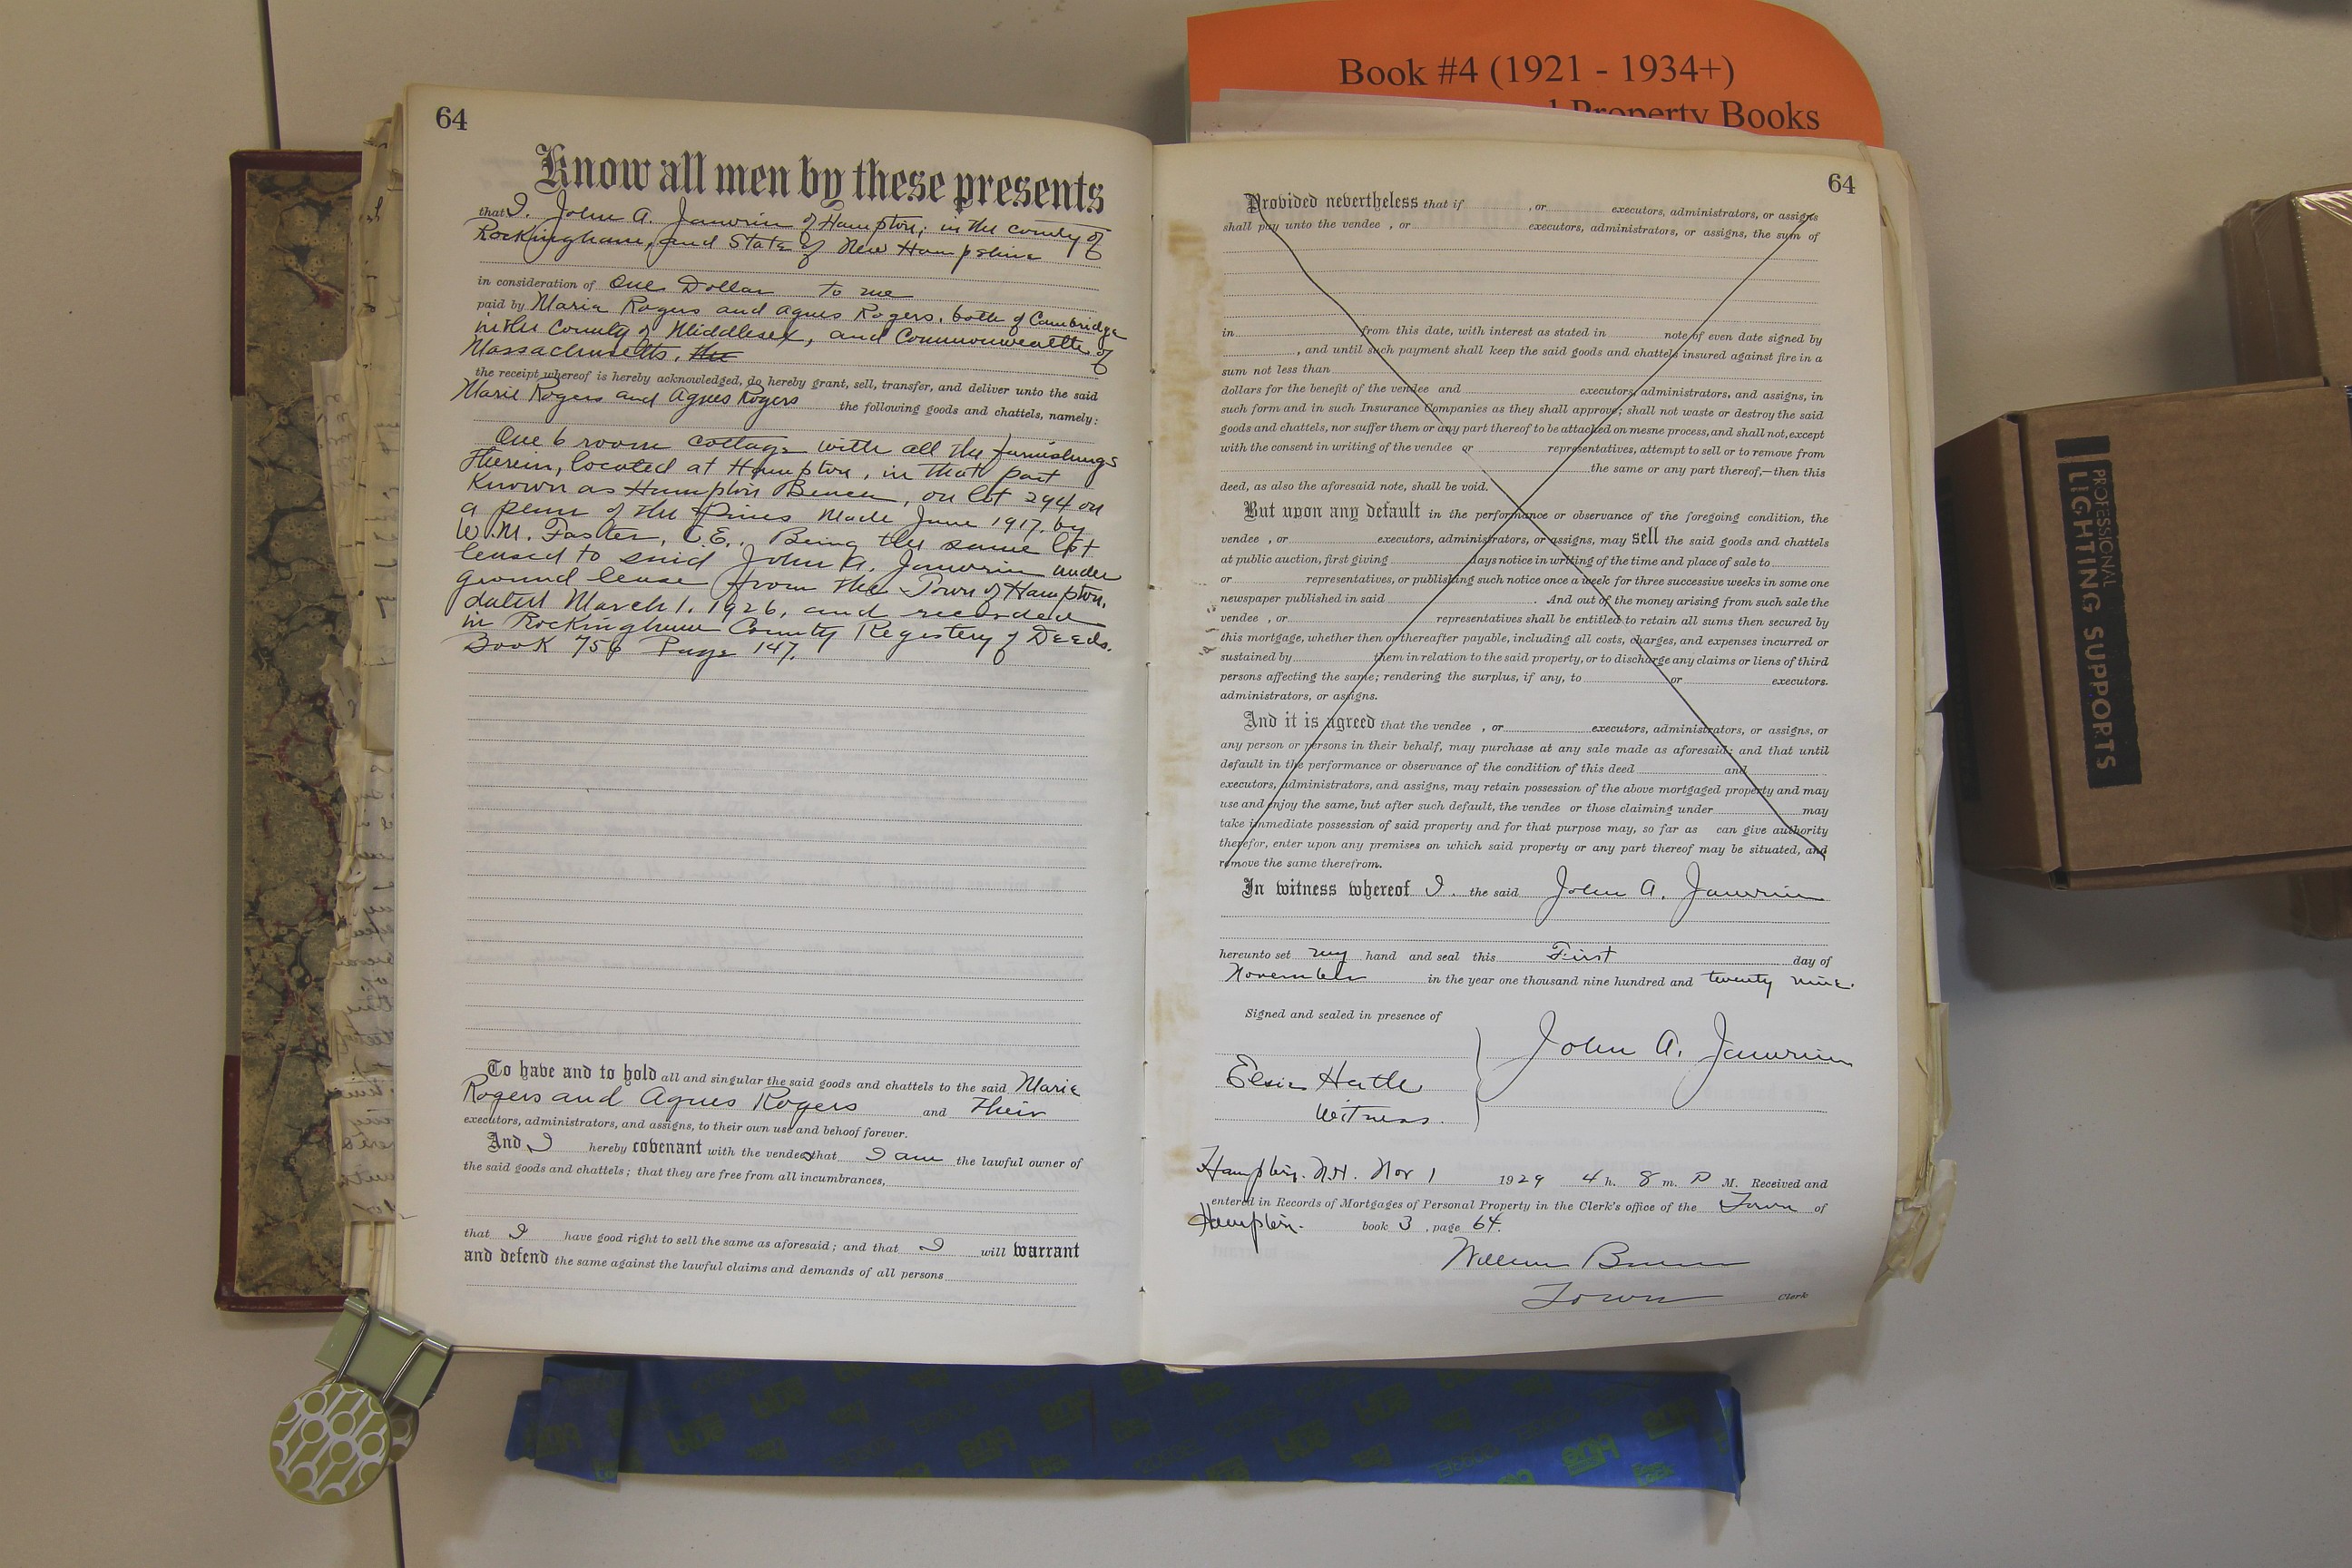 Book #4 (1921 - 1934+)
Property Books
64
Know all men by these presents
that I. John A. Janvrin of Hampton, in the county of
Rockingham, and State of New Hampshire
in consideration of One Dollar to me
paid by Maria Rogers and Agnes Rogers, both of Cambridge
in the County of Middlesex, and Commonwealth of
Massachusetts. the
the receipt whereof is hereby acknowledged, do hereby grant, sell, transfer, and deliver unto the said
Marie Rogers and Agnes Rogers the following goods and chattels, namely:
One 6 room cottage with all the furnishings
therein, located at Hampton, in that part
known as Hampton Beach, on lot 294 on
a plan of the Pines made June 1917, by
W.M. Foster, C.E., Being the same lot
leased to said John A. Janvrin under
ground lease from the Town of Hampton,
dated March 1, 1926, and recorded
in Rockingham County Registery of Deeds.
Book 756 Page 147.
To have and to hold all and singular the said goods and chattels to the said Marie
Rogers and Agnes Rogers and their
executors, administrators, and assigns, to their own use and behoof forever.
And I hereby covenant with the vendees that I am the lawful owner of
the said goods and chattels; that they are free from all incumbrances,
that I have good right to sell the same as aforesaid; and that I will warrant
and defend the same against the lawful claims and demands of all persons
64
Provided nevertheless that if , or executors, administrators, or assigns
shall pay unto the vendee , or executors, administrators, or assigns, the sum of
in from this date, with interest as stated in note of even date signed by
, and until such payment shall keep the said goods and chattels insured against fire in a
sum not less than
dollars for the benefit of the vendee and executors, administrators, and assigns, in
such form and in such Insurance Companies as they shall approve; shall not waste or destroy the said
goods and chattels, nor suffer them or any part thereof to be attached on mesne process, and shall not, except
with the consent in writing of the vendee or representatives, attempt to sell or to remove from
the same or any part thereof,—then this
deed, as also the aforesaid note, shall be void.
But upon any default in the performance or observance of the foregoing condition, the
vendee , or executors, administrators, or assigns, may sell the said goods and chattels
at public auction, first giving days notice in writing of the time and place of sale to
or representatives, or publishing such notice once a week for three successive weeks in some one
newspaper published in said . And out of the money arising from such sale the
vendee , or representatives shall be entitled to retain all sums then secured by
this mortgage, whether then or thereafter payable, including all costs, charges, and expenses incurred or
sustained by them in relation to the said property, or to discharge any claims or liens of third
persons affecting the same; rendering the surplus, if any, to or executors.
administrators, or assigns.
And it is agreed that the vendee , or executors, administrators, or assigns, or
any person or persons in their behalf, may purchase at any sale made as aforesaid; and that until
default in the performance or observance of the condition of this deed and
executors, administrators, and assigns, may retain possession of the above mortgaged property and may
use and enjoy the same, but after such default, the vendee or those claiming under may
take immediate possession of said property and for that purpose may, so far as can give authority
therefor, enter upon any premises on which said property or any part thereof may be situated, and
remove the same therefrom.
In witness whereof I. the said John A. Janvrin
hereunto set my hand and seal this First day of
November in the year one thousand nine hundred and twenty nine.
Signed and sealed in presence of
John A. Janvrin
Elsie Hatle
Witness.
Hampton. N.H. Nov 1 1929 4 h. 8 m. P M. Received and
entered in Records of Mortgages of Personal Property in the Clerk's office of the Town of
Hampton. book 3 , page 64.
William Brown
Town Clerk
PROFESSIONAL
LIGHTING SUPPORTS